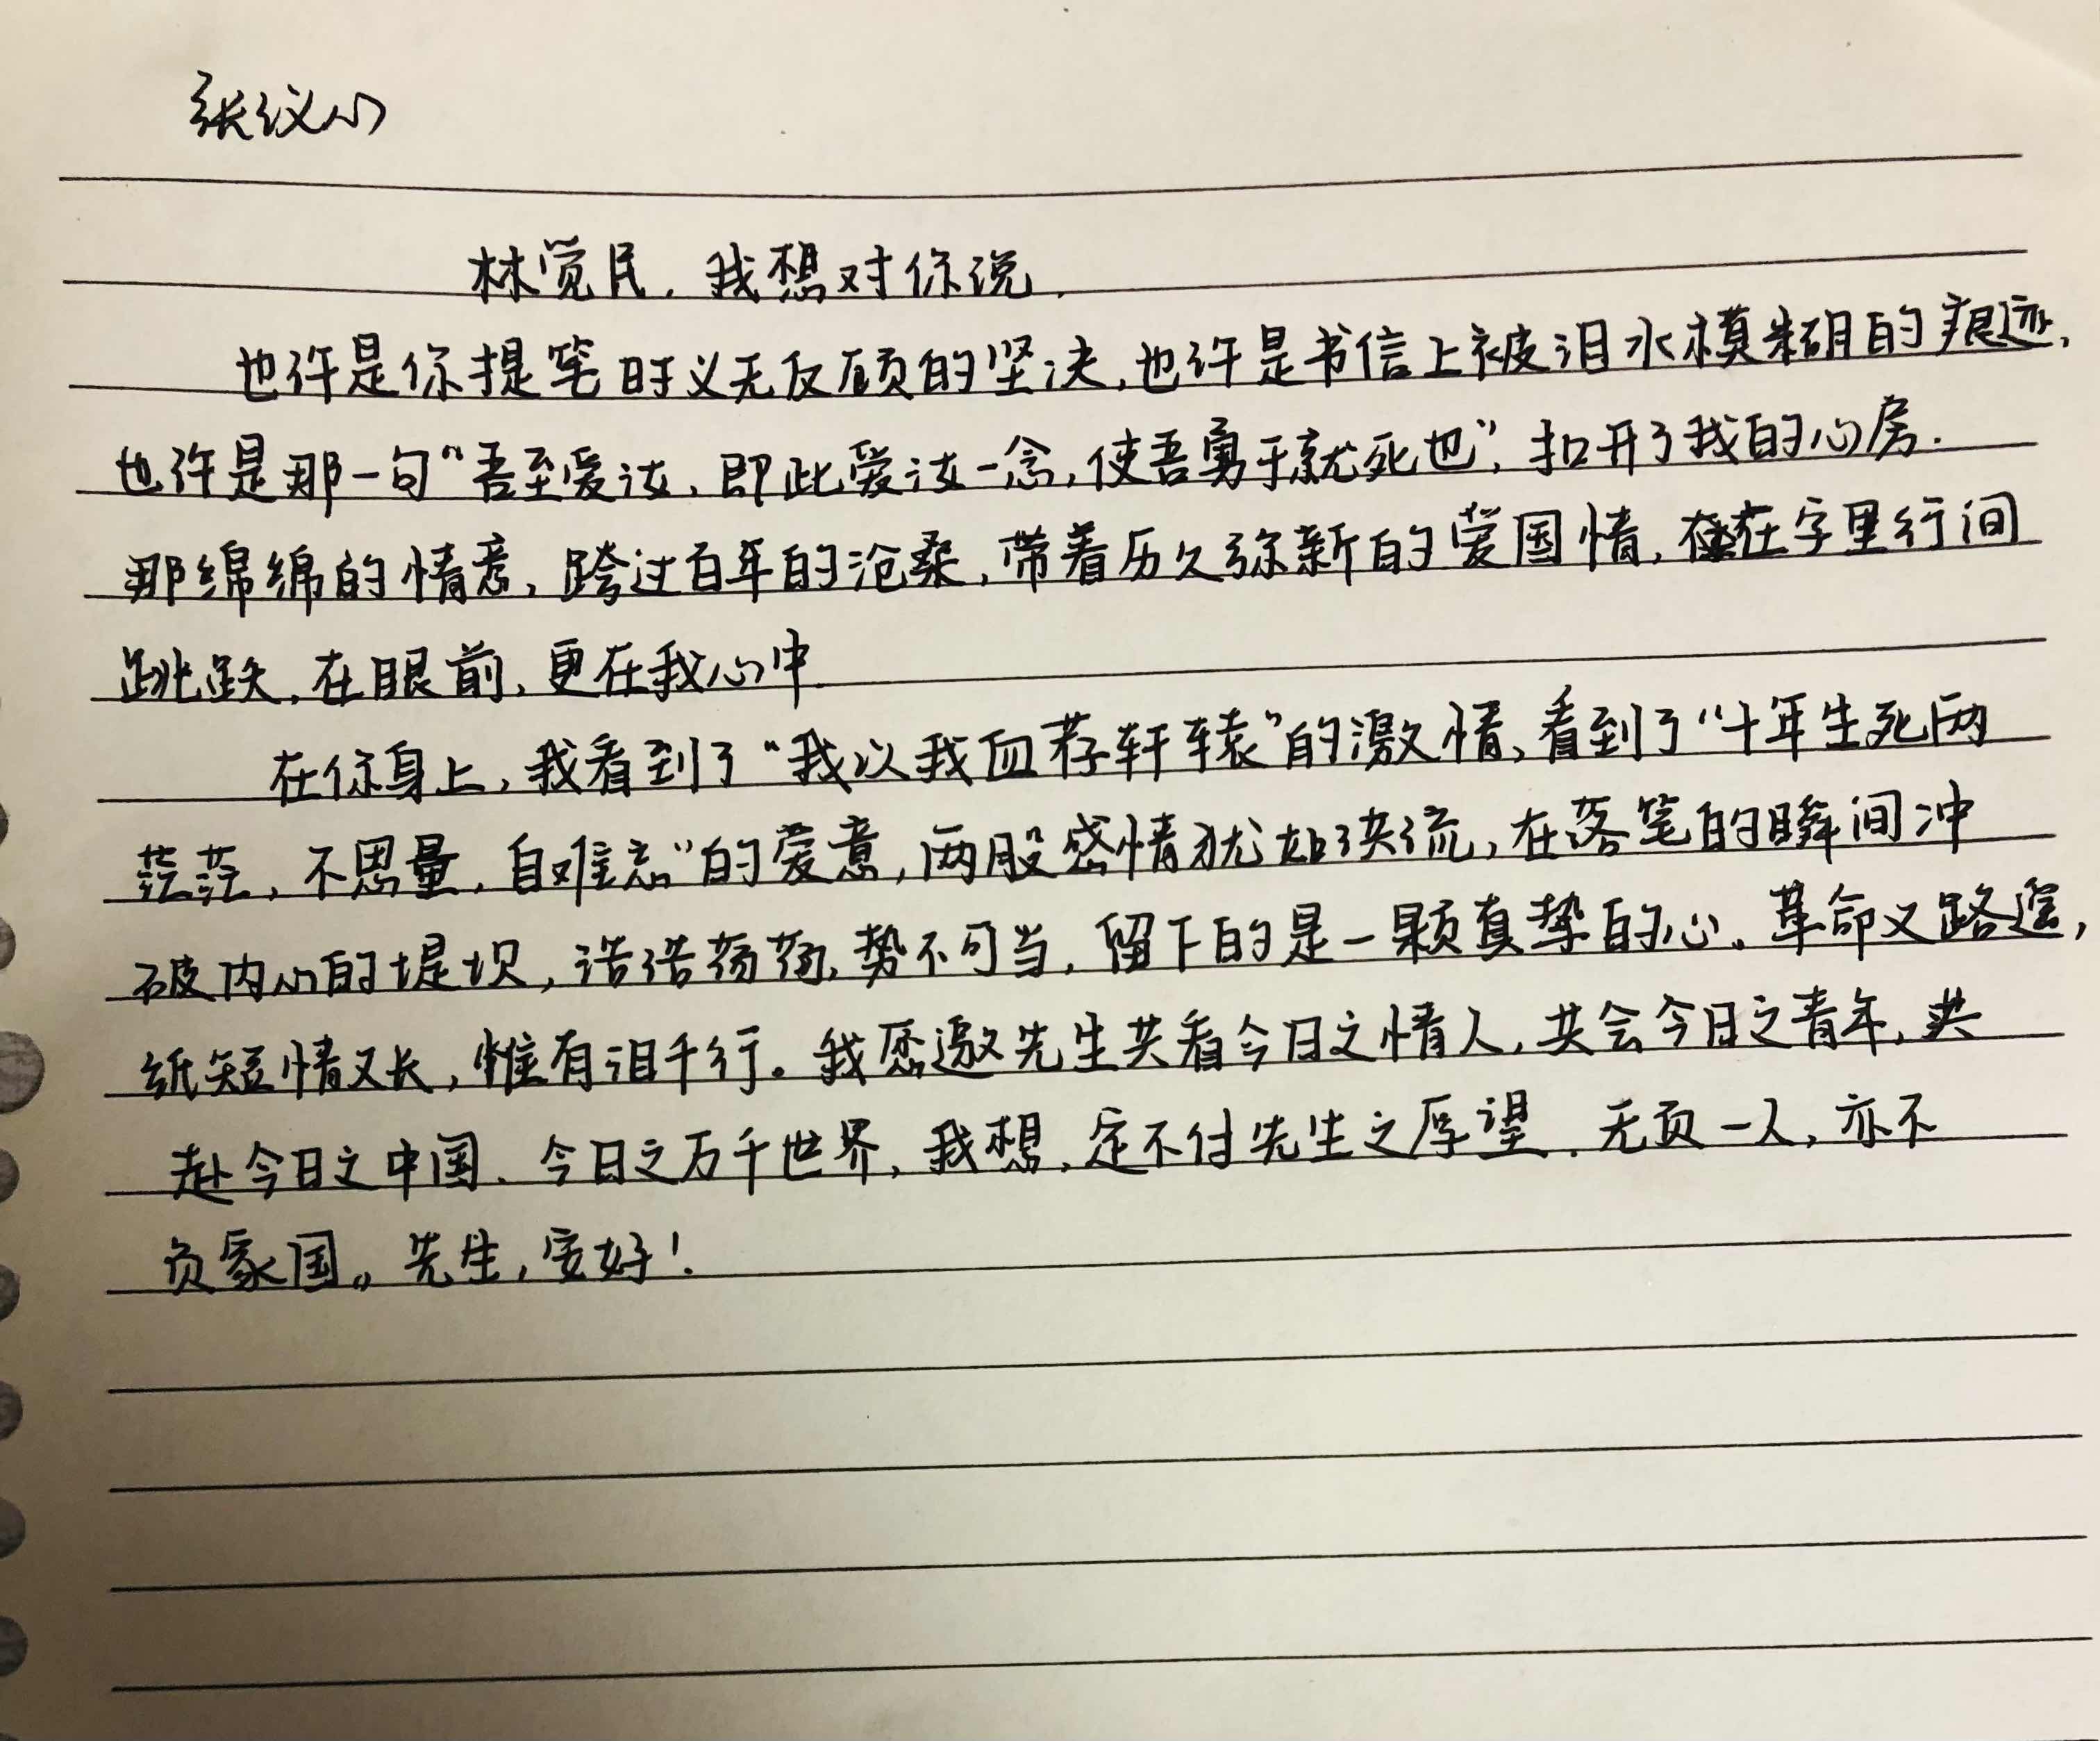 张纹心
林觉民，我想对你说.
也许是你提笔时义无反顾的坚决，也许是书信上被泪水模糊的痕迹，
也许是那一句“吾至爱汝，即此爱汝一念，使吾勇于就死也”，扣开了我的心房.
那绵绵的情意，跨过百年的沧桑，带着历久弥新的爱国情，在字里行间
跳跃，在眼前，更在我心中.
在你身上，我看到了“我以我血荐轩辕”的激情，看到了“十年生死两
茫茫，不思量，自难忘”的爱意，两股感情犹如洪流，在落笔的瞬间冲
破内心的堤坝，浩浩荡荡，势不可当，留下的是一颗真挚的心。革命又路遥，
纸短情又长，惟有泪千行。我愿邀先生共看今日之情人，共会今日之青年，共
赴今日之中国、今日之万千世界，我想，定不付先生之厚望.无负一人，亦不
负家国。先生，安好！